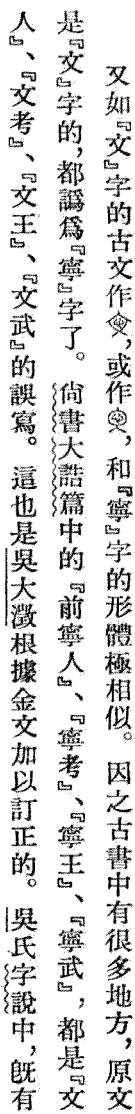 又如『文』字的古文作,或作,和『寧』字的形體極相似。因之古書中有很多地方,原文
是『文』字的,都譌爲『寧』字了。尙書大誥篇中的『前寧人』、『寧考』、『寧王』、『寧武』,都是『文
人』、『文考』、『文王』、『文武』的誤寫。這也是吳大澂根據金文加以訂正的。吳氏字說中,旣有